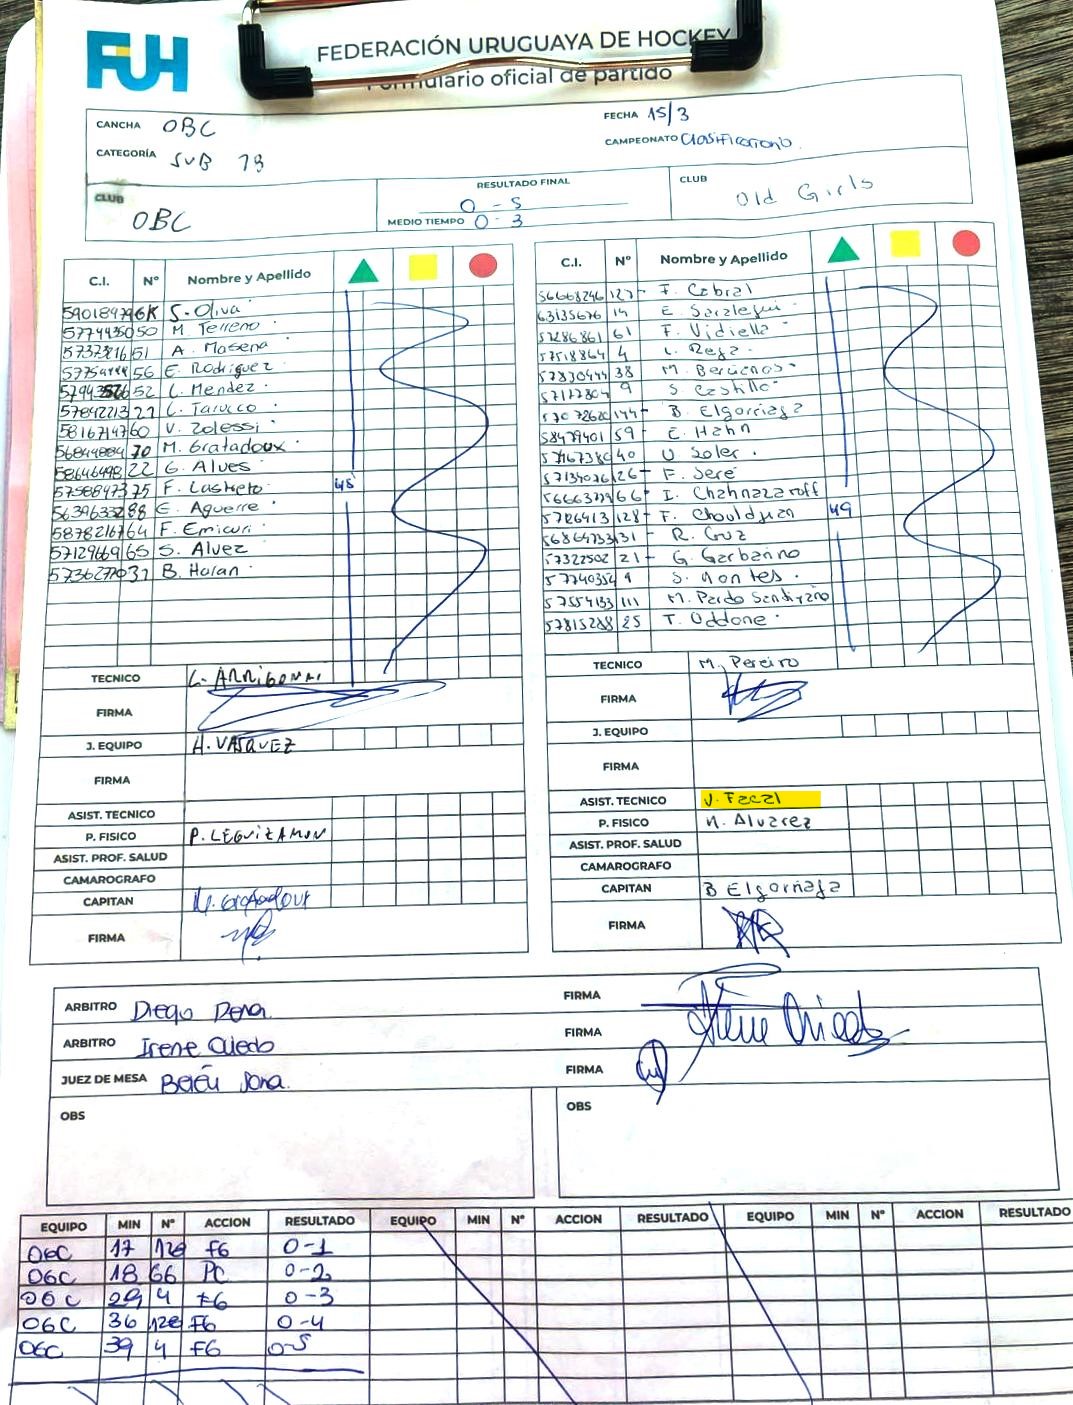 FUH
FEDERACIÓN URUGUAYA DE HOCKEY
Formulario oficial de partido
CANCHA OBC
FECHA 15/3
CATEGORÍA SUB
CAMPEONATO
CLUB OBC
RESULTADO FINAL 0-5
MEDIO TIEMPO 0-3
CLUB Old Girls
C.I. N° Nombre y Apellido
S. Oliva
50 M. Terreno
51 A. Mosena
56 E. Rodriguez
52 C. Mendez
57842213 21 C. Tarucco
58167147 60 V. Zolessi
56844884 70 M. Gratadoux
58646498 22 G. Alves
57588473 75 F. Lastreto 45
56396332 88 E. Aguerre
58782167 64 F. Emicuri
57129669 65 S. Alvez
B. Holan
TECNICO C. ARRIGONI
FIRMA
J. EQUIPO H. VASQUEZ
FIRMA
ASIST. TECNICO
P. FISICO P. LEGUIZAMON
ASIST. PROF. SALUD
CAMAROGRAFO
CAPITAN M. Gratadoux
FIRMA
C.I. N° Nombre y Apellido
56668246 127 F. Cabral
63135676 14 E. Sarzlegui
57286861 61 F. Vidiella
57518864 4 L. Rega
57830444 38 M. Berúenos
9 S. Castillo
144 B. Elgorriaga
58479401 59 E. Hahn
40 U Soler
57134076 26 F. Sere
66 I. Chahnazaroff
128 F. Chouldjian 49
31 R. Cruz
57322502 21 G. Garbarino
S. Montes
57554133 111 M. Pardo Santayana
57815288 25 T. Oddone
TECNICO M. Pereiro
FIRMA
J. EQUIPO
FIRMA
ASIST. TECNICO J. Fazal
P. FISICO N. Alvarez
ASIST. PROF. SALUD
CAMAROGRAFO
CAPITAN B Elgorriaga
FIRMA
ARBITRO Diego Pena FIRMA
ARBITRO Irene Oviedo FIRMA Irene Oviedo
JUEZ DE MESA Belén Sona FIRMA
OBS
OBS
EQUIPO MIN N° ACCION RESULTADO EQUIPO MIN N° ACCION RESULTADO EQUIPO MIN N° ACCION RESULTADO
OGC 17 128 FG 0-1
OGC 18 66 PC 0-2
OGC 29 4 FG 0-3
OGC 36 128 FG 0-4
OGC 39 4 FG 0-5